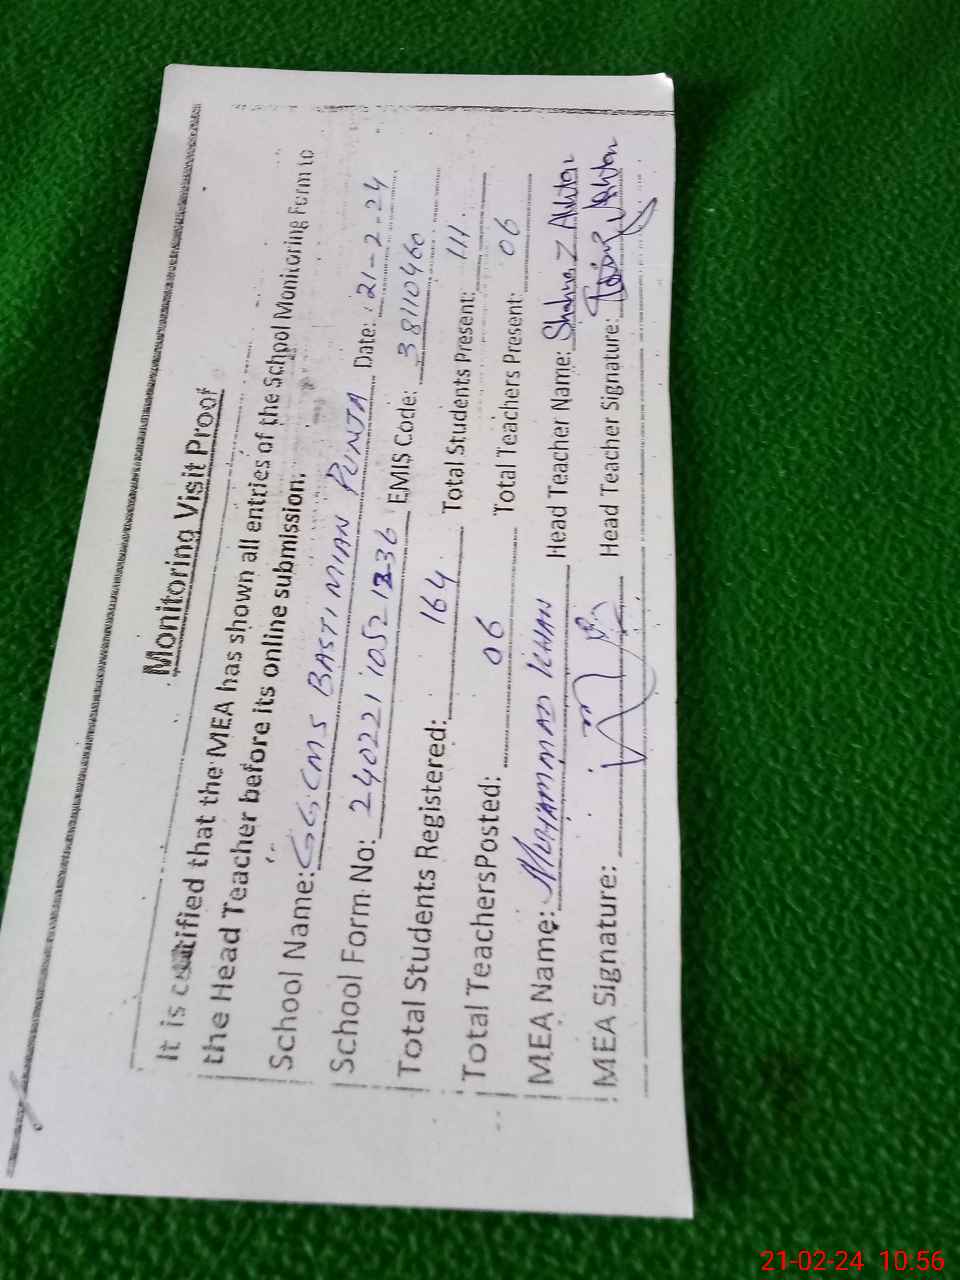 Monitoring Visit Proof
It is certified that the MEA has shown all entries of the School Monitoring Form to
the Head Teacher before its online submission.
School Name: GGCMS BASTI MIAN PUNJA Date: 21-2-24
School Form No: 2402211052 1336 EMIS Code: 38110460
Total Students Registered: 164 Total Students Present: 111
Total Teachers Posted: 06 Total Teachers Present: 06
MEA Name: MUHAMMAD KHAN Head Teacher Name: Akhtar
MEA Signature: Head Teacher Signature:
21-02-24 10:56